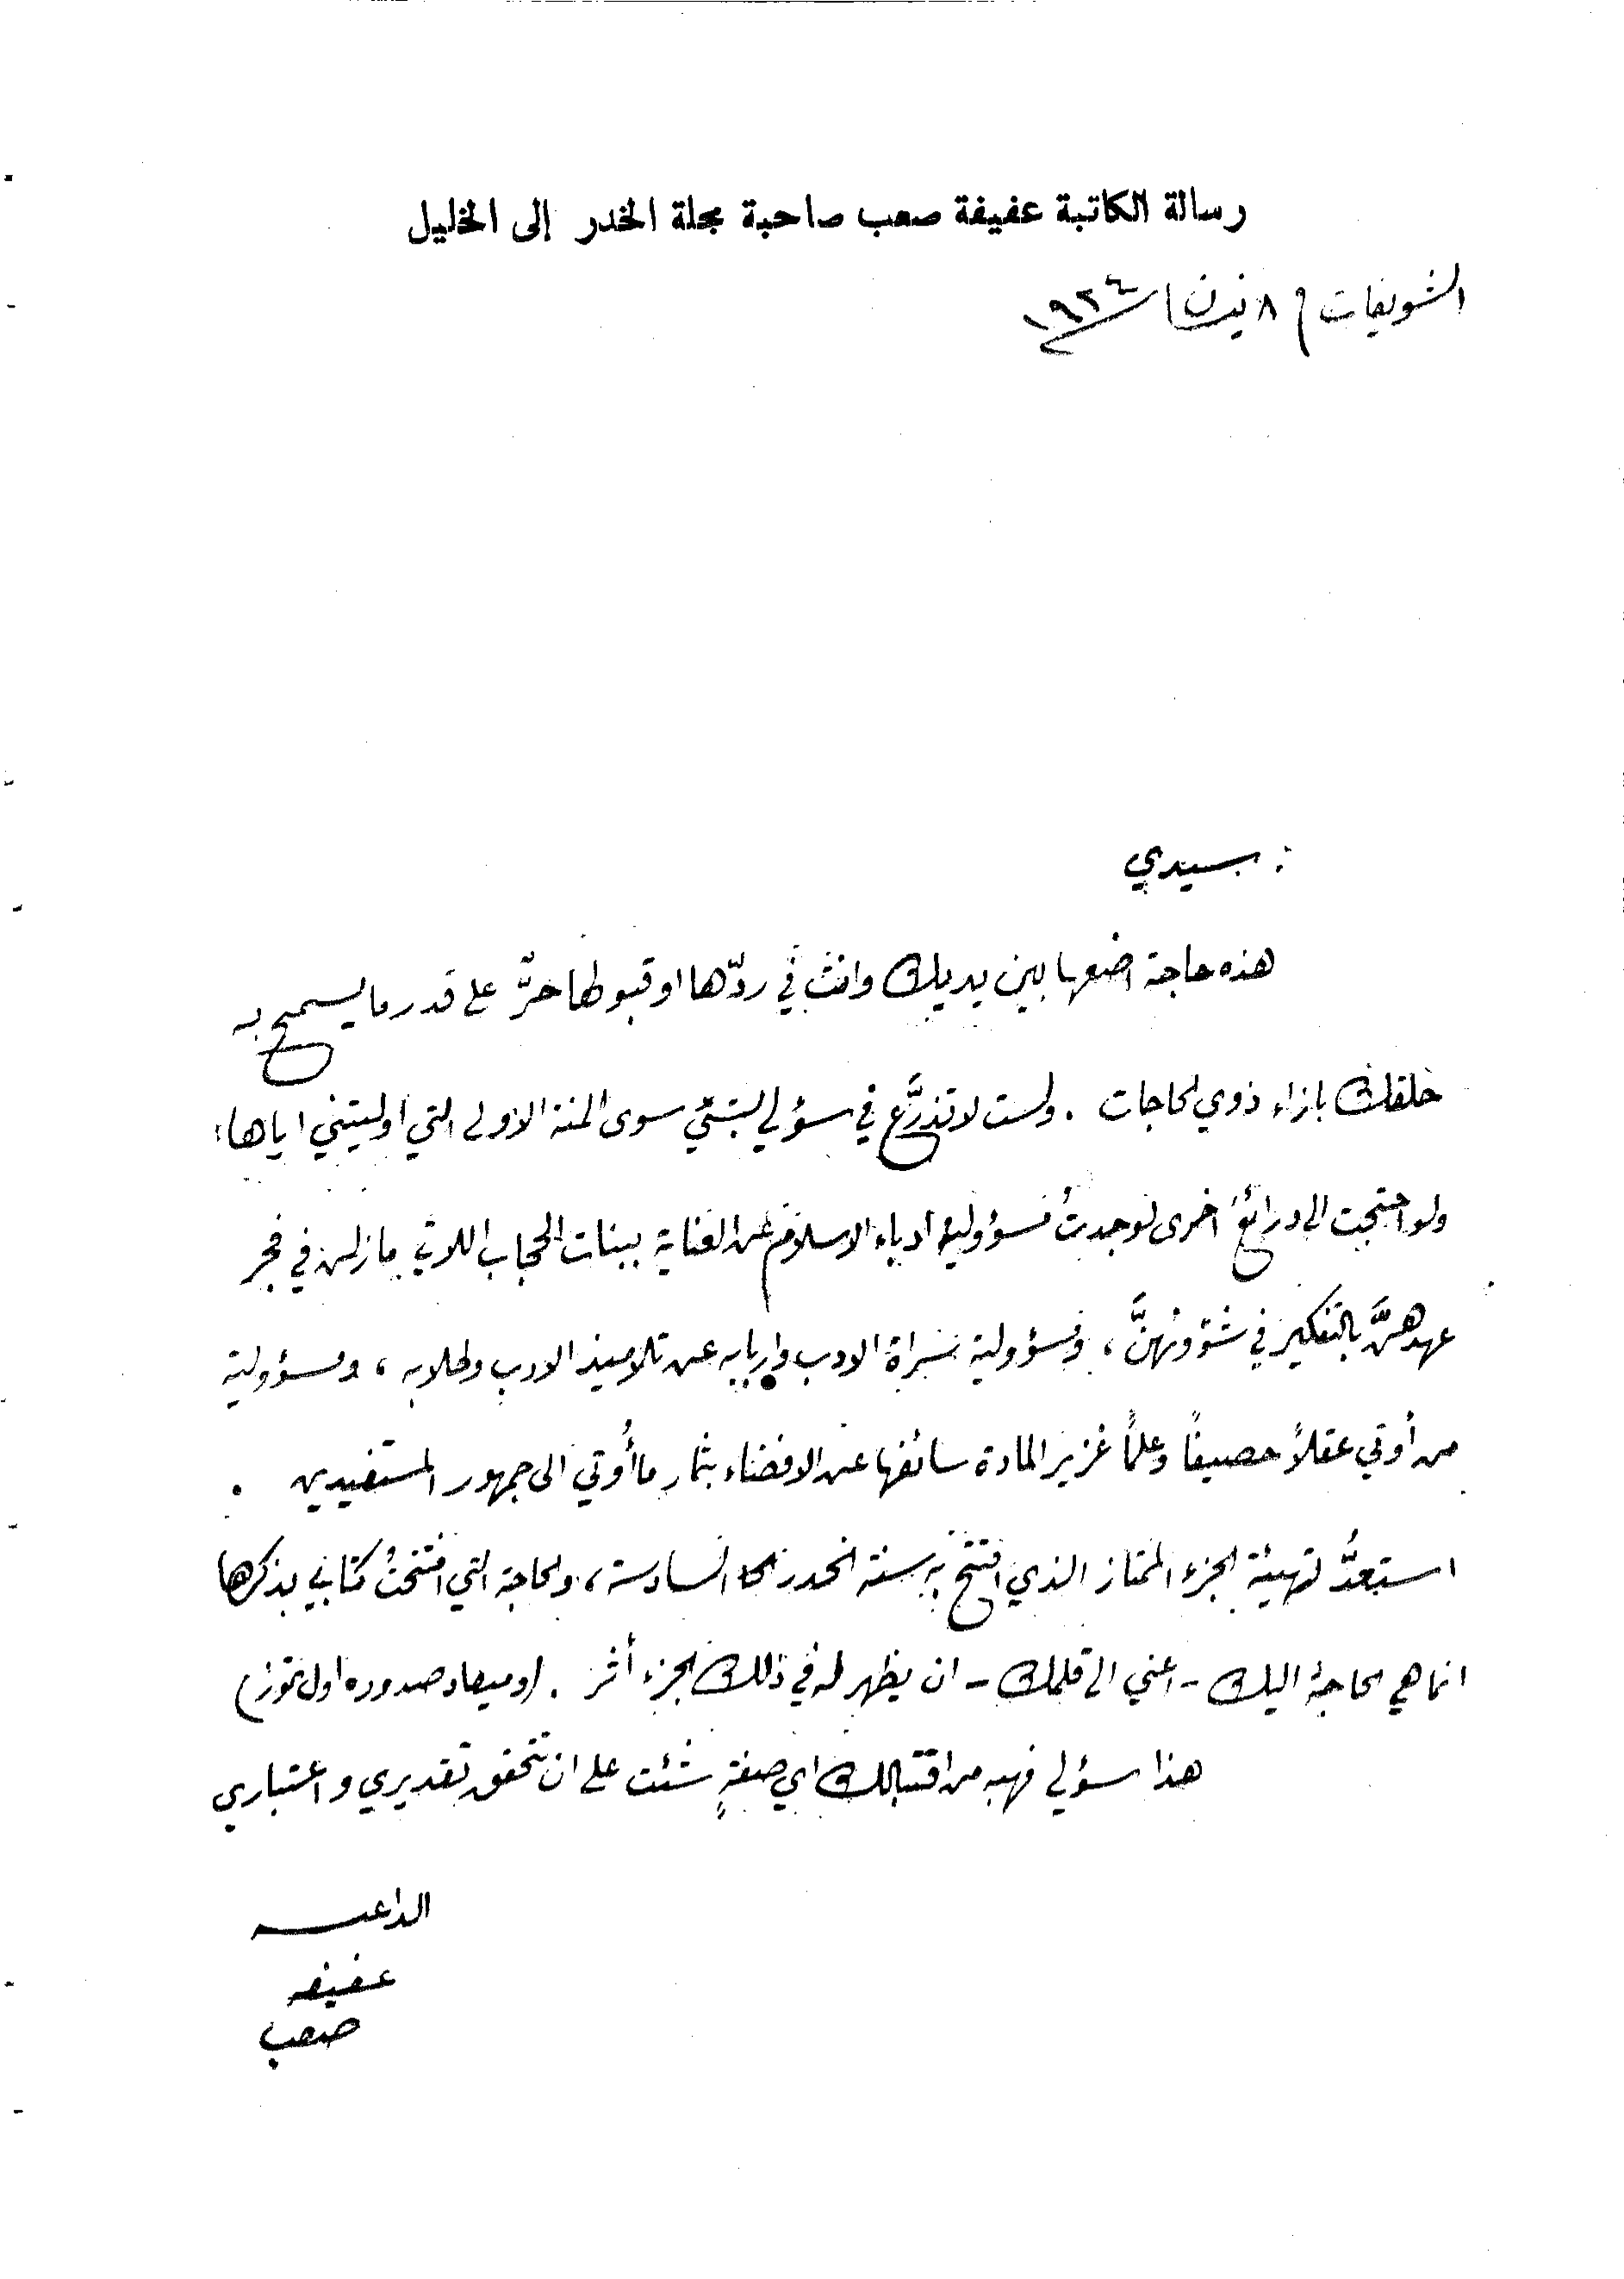 رسالة الكاتبة عفيفة صعب صاحبة مجلة الخدر إلى الخليل
الشويفات في ٨ نيسان ١٩٢٤
سيدي :
هذه حاجة اضعها بين يديك وانت في ردّها او قبولها حرٌّ على قدر ما يسمح به
خلقك بازاء ذوي الحاجات . ولست لاتذرَّع في سؤلي بشيءٍ سوى المنة الاولى التي اوليتني اياها ؛
ولو احتجت الى ذرائع اخرى لوجدتُ مسؤولية ادباء الاسلام عن العناية ببنات الحجاب اللاتي ما زلن في فجر
عهدهنَّ بالتفكير في شؤونهنَّ ، ومسؤولية سراة الادب واربابه عن تلاميذ الادب وطلابه ، ومسؤولية
من أوتي عقلاً حصيفاً وعلماً غزير المادة سائغها عن الافضاء بثمار ما أُوتي الى جمهور المستفيدين .
استعدُّ لتهيئة الجزء الممتاز الذي افتتح به سنة الخدر السادسة ، والحاجة التي افتتحتُ كتابي بذكرها
انما هي الحاجة اليك - اعني الى قلمك - ان يظهر له في ذلك الجزء أثر . (وميعاد صدوره اول تموز)
هذا سؤلي فهبه من اقتبالك اي صفةٍ شئت على ان تتحقق تقديري واعتباري
الداعية
عفيفه
صعب